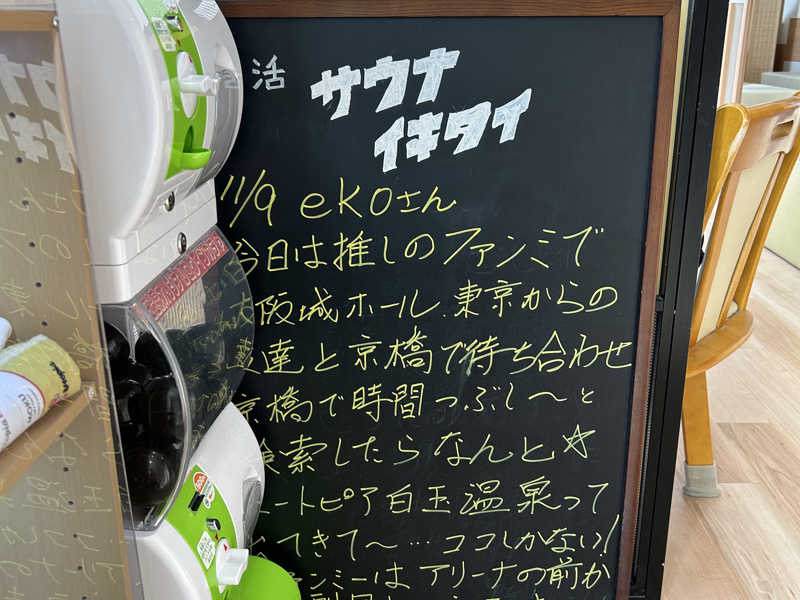 活
サウナ
イキタイ
11/9 ekoさん
今日は推しのファンミで
大阪城ホール、東京からの
達と京橋で待ち合わせ
京橋で時間つぶし〜と
検索したらなんと☆
ートピア白玉温泉って
てきて〜…ココしかない!
ンミーはアリーナの前か